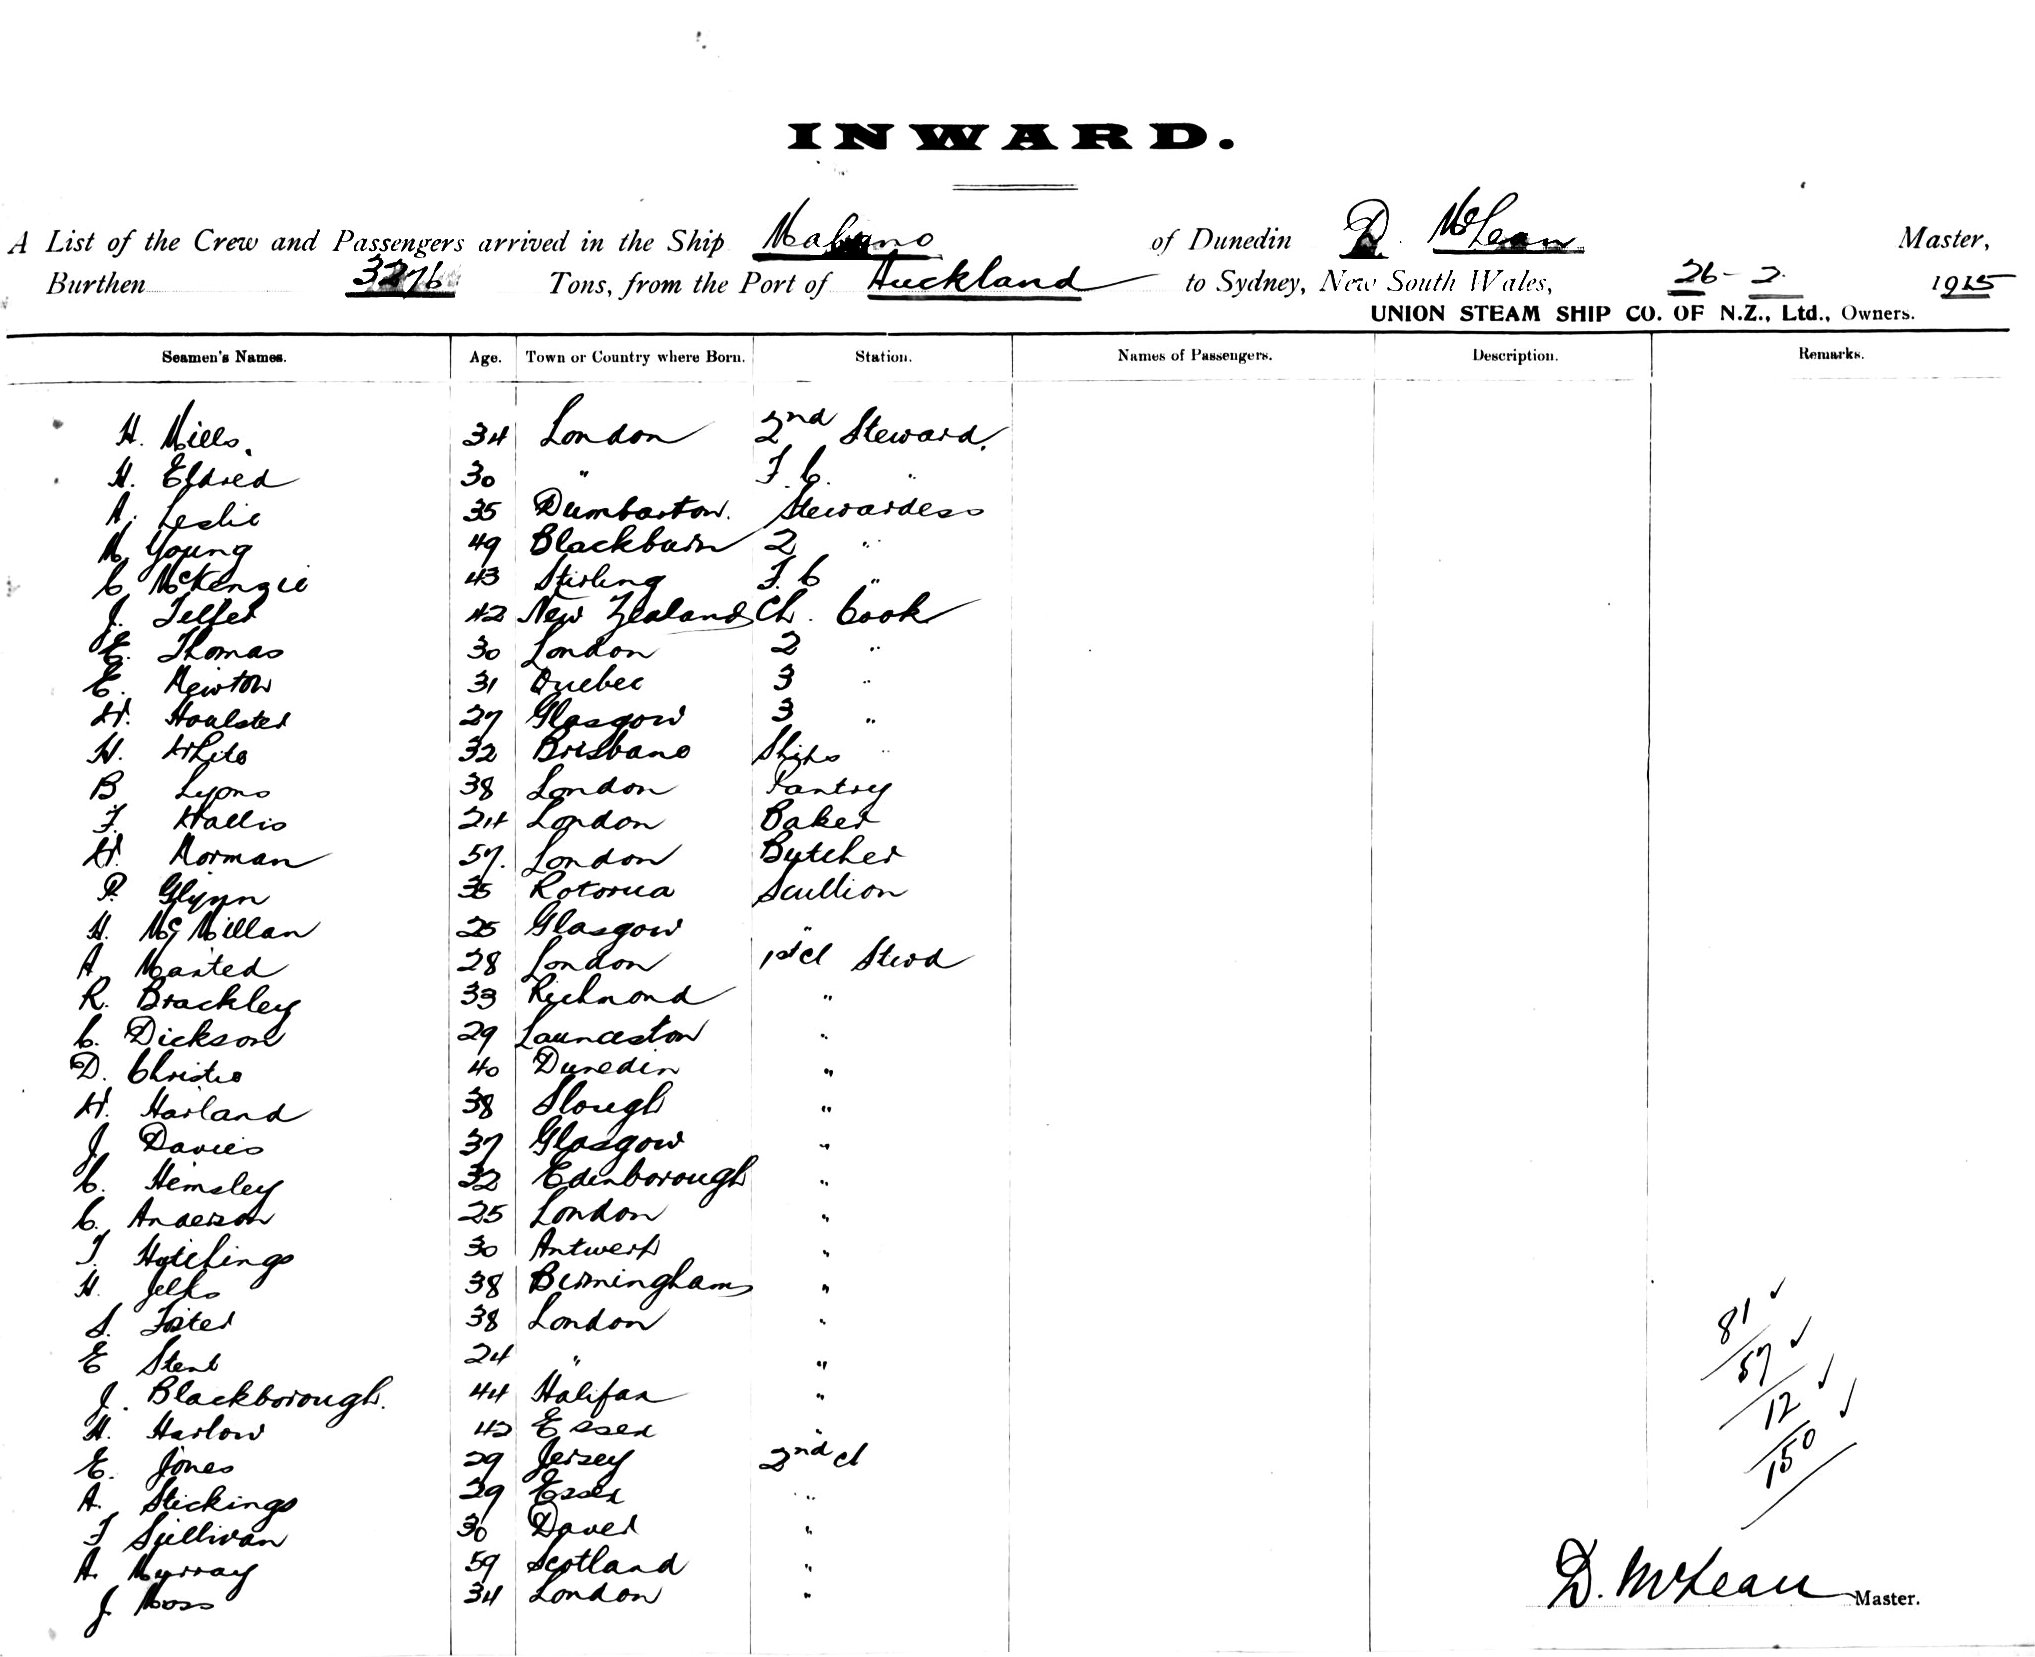 INWARD.
A List of the Crew and Passengers arrived in the Ship Maheno of Dunedin D. McLean Master,
Burthen 3276 Tons, from the Port of Auckland to Sydney, New South Wales, 26-2 1915
UNION STEAM SHIP CO. OF N.Z., Ltd., Owners.
Seamen's Names. Age. Town or Country where Born. Station. Names of Passengers. Description. Remarks.
H. Mills. 34 London 2nd Steward.
H. Eldred 30 " F. C. "
A. Leslie 35 Dumbarton. Stewardess
M Young 49 Blackburn 2 "
C McKenzie 43 Stirling F. C "
J. Telfer 42 New Zealand Ch. Cook
E. Thomas 30 London 2 "
E. Newton 31 Quebec 3 "
W. Houlster 27 Glasgow 3 "
H. White 32 Brisbane Ships "
B Lyons 38 London Pantry
F. Wallis 24 London Baker
W. Norman 57. London Butcher
P. Glynn 35 Rotorua Scullion
H. McMillan 25 Glasgow "
A. Manted 28 London 1st cl Stwd
R. Brackley 33 Richmond "
C. Dickson 29 Launceston "
D. Christie 40 Dunedin "
W. Harland 38 Slough "
J Davies 37 Glasgow "
C. Hemsley 32 Edinborough "
C. Anderson 25 London "
T. Hutchings 30 Antwerp "
H. Jelks 38 Birmingham "
S. Foster 38 London "
E Stent 24 " "
J. Blackborough. 44 Halifax "
H. Harlow 42 Essex "
E. Jones 29 Jersey 2nd cl
A. Stickings 29 Essex "
F Sullivan 30 Dover "
A. Murray 59 Scotland "
J. Moss 34 London "
81 ✓
57 ✓
12 ✓
150 ✓
D. McLean Master.